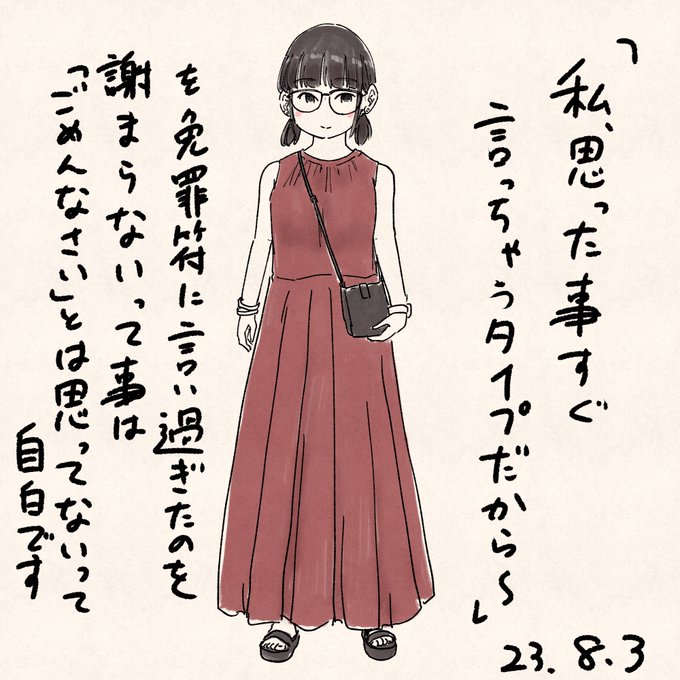 「私、思った事すぐ
言っちゃうタイプだから〜」
を免罪符に言い過ぎたのを
謝まらないって事は
「ごめんなさい」とは思ってないって
自白です
23.8.3